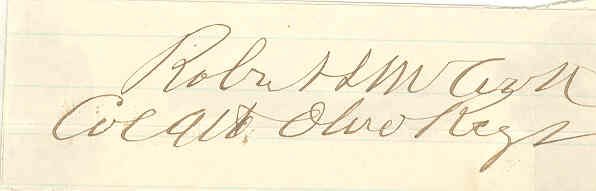 Robert L McCook
Col 9th Ohio Regt